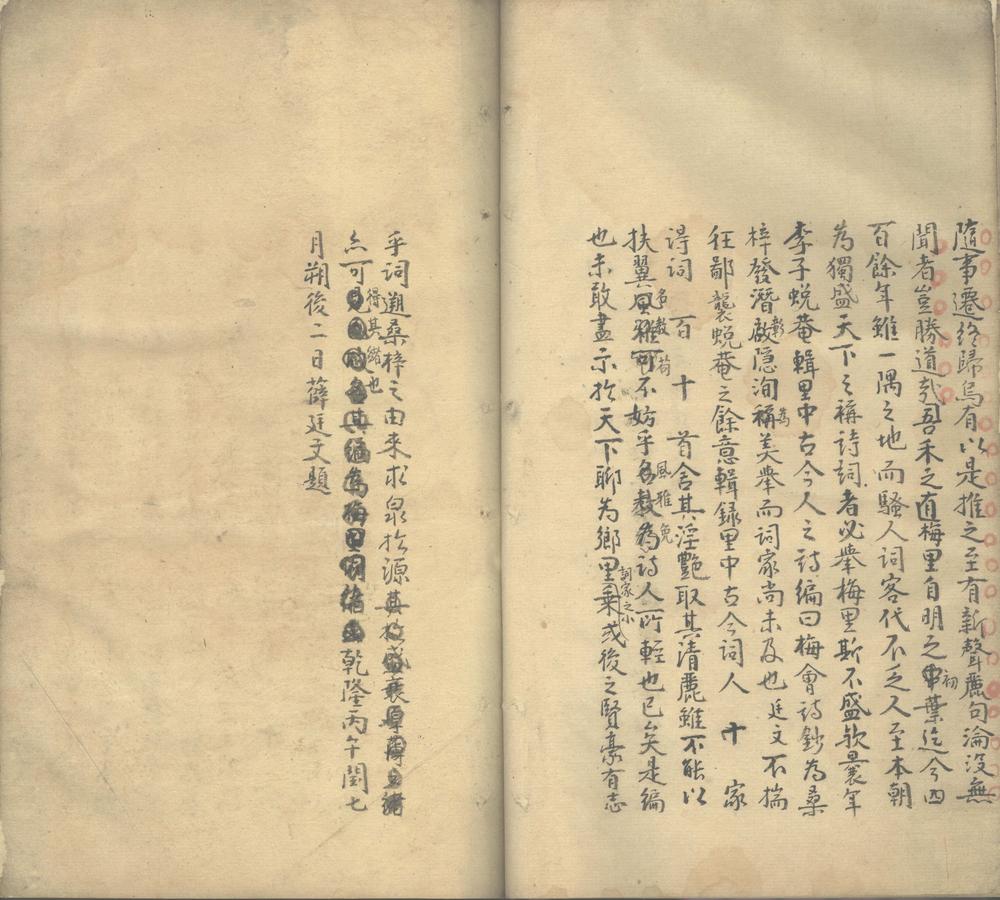 隨事遷終歸烏有以是推之至有新聲麗句淪沒無
聞者豈勝道哉吾禾之有梅里自明之中初葉迄今四
百餘年雖一隅之地而騷人詞客代不乏人至本朝
為獨盛天下之稱詩詞者必舉梅里斯不盛歟曩年
李子蛻菴輯里中古今人之詩編曰梅會詩鈔為桑
梓發潛彰啟隱洵為稱美舉而詞家尚未及也廷文不揣
枉鄙襲蛻菴之餘意輯錄里中古今詞人 十 家
得詞 百 十 首舍其淫艷取其清麗雖不能以
扶翼名教風雅苟可不妨乎風雅名教免為詩人所輕也已矣是編
也未敢盡示於天下聊為鄉里詞家之小乘或後之賢豪有志
乎詞遡桑梓之由來求泉於源其於盛衰厚薄之緒
亦可得其緒也見 其編為梅里詞緒 乾隆丙午閏七
月朔後二日薛廷文題